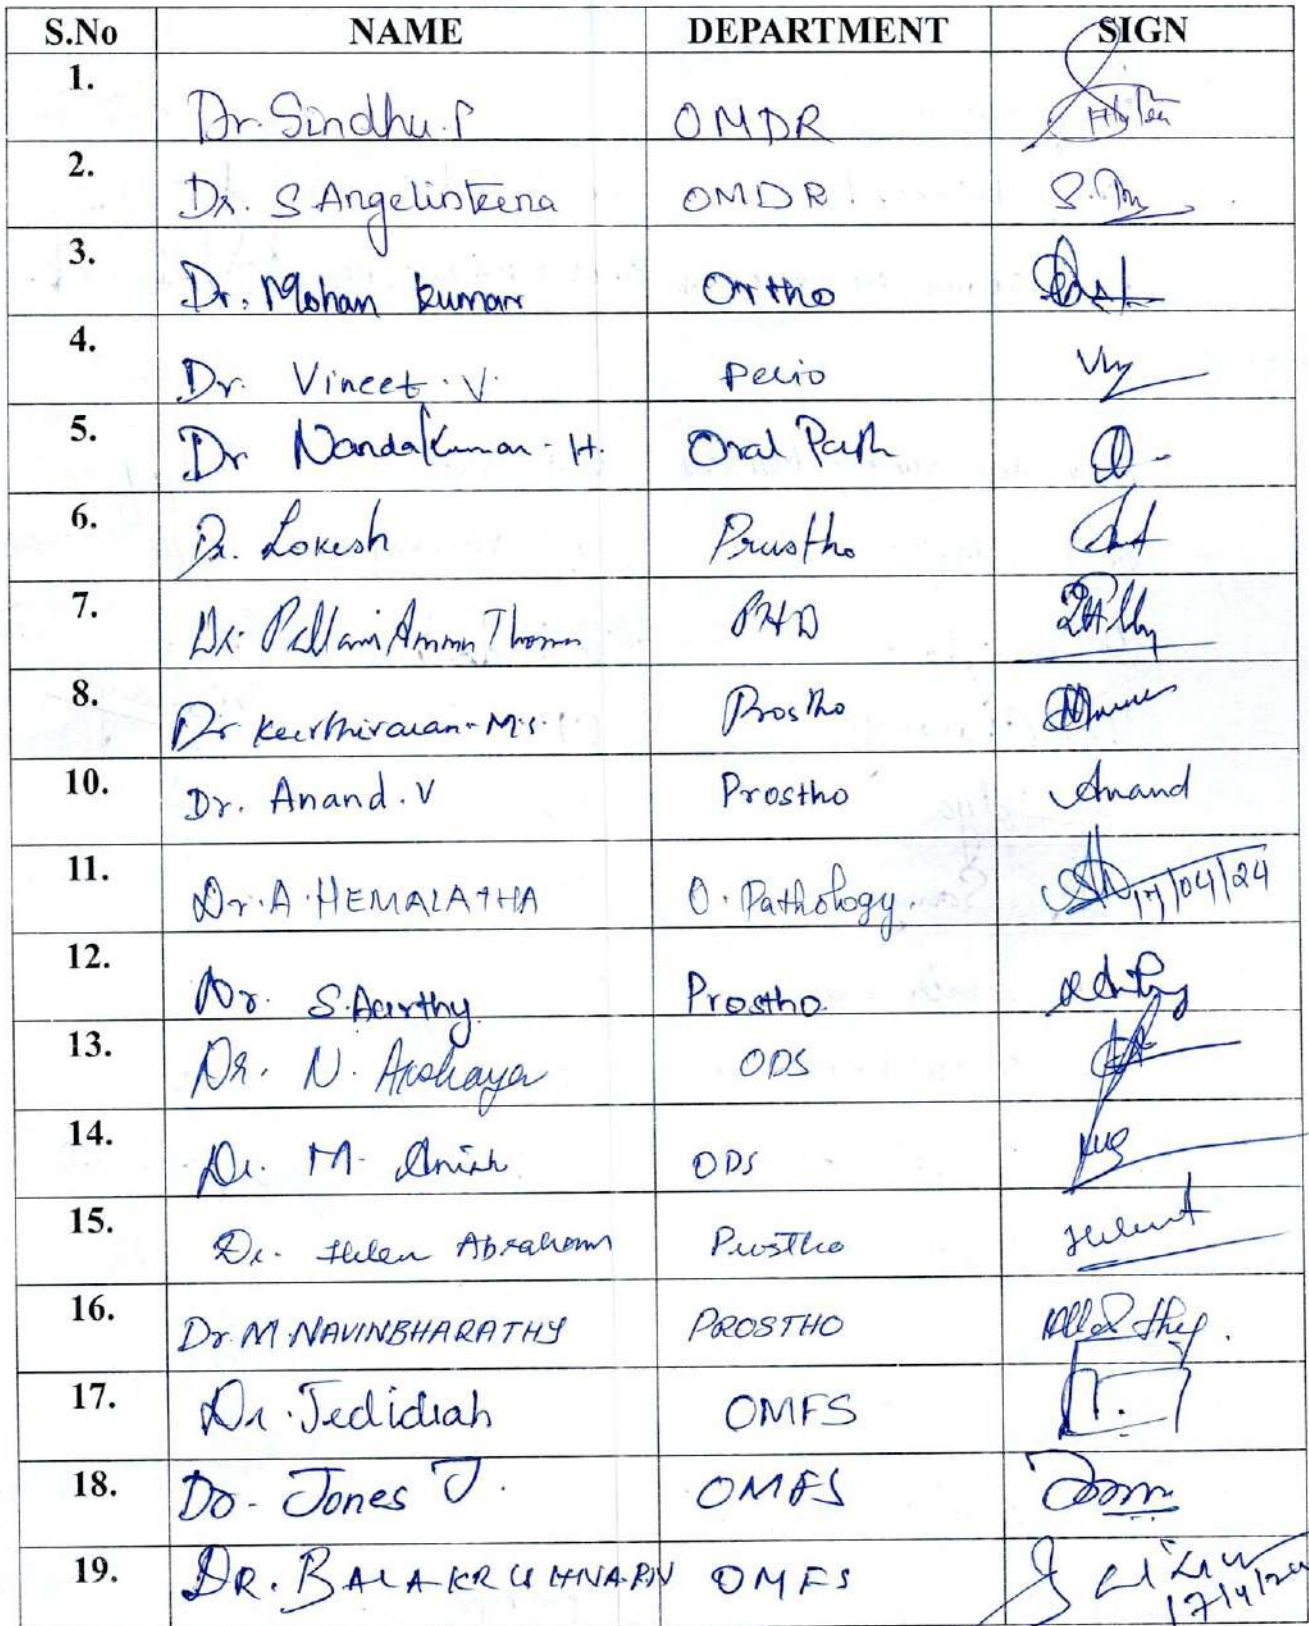 S.No NAME DEPARTMENT SIGN
1. Dr. Sindhu. P OMDR
2. Dr. S Angelinsteena OMDR
3. Dr. Mohan Kumar Ortho
4. Dr. Vineet. V. Perio
5. Dr Nandakumar - H. Oral Path
6. Dr. Lokesh Prostho
7. Dr. Pallavi Ammu Thomas PHD
8. Dr Keerthivasan - M.S. Prostho
10. Dr. Anand. V Prostho Anand
11. Dr. A. HEMALATHA O. Pathology. 17/04/24
12. Dr. S. Aarthy Prostho.
13. Dr. N. Akshaya ODS
14. Dr. M. Anish ODS
15. Dr. Helen Abraham Prostho
16. Dr. M. NAVINBHARATHY PROSTHO
17. Dr. Jedidiah OMFS
18. Dr. Jones J. OMFS
19. DR. BALAKRISHNAN OMFS 17/4/24